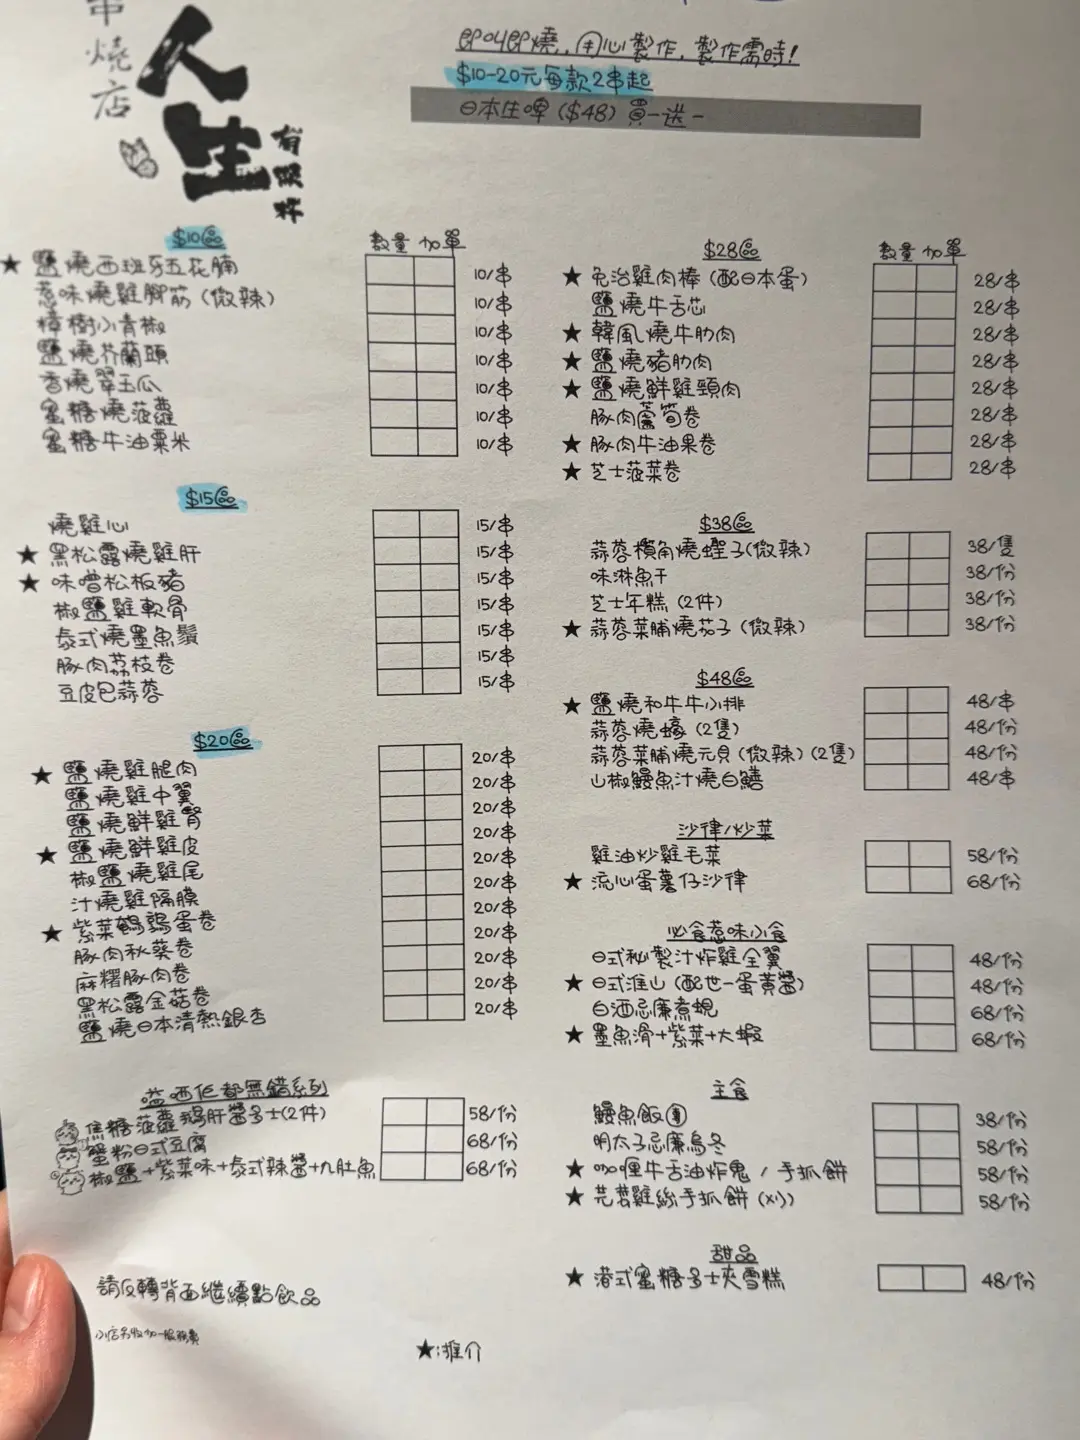 串燒店
人生
有限杯
即叫即燒,用心製作,製作需時!
$10-20元每款2串起
日本生啤($48)買一送一
$10區 數量 加單
★ 鹽燒西班牙五花腩 10/串
惹味燒雞腳筋(微辣) 10/串
樟樹小青椒 10/串
鹽燒芥蘭頭 10/串
香燒翠玉瓜 10/串
蜜糖燒菠蘿 10/串
蜜糖牛油粟米 10/串
$15區
燒雞心 15/串
★ 黑松露燒雞肝 15/串
★ 味噌松板豬 15/串
椒鹽雞軟骨 15/串
泰式燒墨魚鬚 15/串
豚肉荔枝卷 15/串
豆皮包蒜蓉 15/串
$20區
★ 鹽燒雞腿肉 20/串
鹽燒雞中翼 20/串
鹽燒鮮雞腎 20/串
★ 鹽燒鮮雞皮 20/串
椒鹽燒雞尾 20/串
汁燒雞隔膜 20/串
★ 紫菜鵪鶉蛋卷 20/串
豚肉秋葵卷 20/串
麻糬豚肉卷 20/串
黑松露金菇卷 20/串
鹽燒日本清熱銀杏 20/串
嗌西佢都無錯系列
焦糖菠蘿鵝肝醬多士(2件) 58/份
蟹粉日式豆腐 68/份
椒鹽+紫菜味+泰式辣醬+九肚魚 68/份
請反轉背面繼續點飲品
小店另收加一服務費
$28區 數量 加單
★ 免治雞肉棒(配日本蛋) 28/串
鹽燒牛舌芯 28/串
★ 韓風燒牛肋肉 28/串
★ 鹽燒豬肋肉 28/串
★ 鹽燒鮮雞頸肉 28/串
豚肉蘆筍卷 28/串
★ 豚肉牛油果卷 28/串
★ 芝士菠菜卷 28/串
$38區
蒜蓉欖角燒蟶子(微辣) 38/隻
味淋魚干 38/份
芝士年糕(2件) 38/份
★ 蒜蓉菜脯燒茄子(微辣) 38/份
$48區
★ 鹽燒和牛牛小排 48/串
蒜蓉燒蠔(2隻) 48/份
蒜蓉菜脯燒元貝(微辣)(2隻) 48/份
山椒鰻魚汁燒白鱔 48/串
沙律/炒菜
雞油炒雞毛菜 58/份
★ 流心蛋薯仔沙律 68/份
必食惹味小食
日式秘製汁炸雞全翼 48/份
★ 日式淮山(配世一蛋黃醬) 48/份
白酒忌廉煮蜆 68/份
★ 墨魚滑+紫菜+大蝦 68/份
主食
鰻魚飯 38/份
明太子忌廉烏冬 58/份
★ 咖喱牛舌油炸鬼/手抓餅 58/份
★ 芫荽雞絲手抓餅(X小) 58/份
甜品
★ 港式蜜糖多士夾雪糕 48/份
★:推介